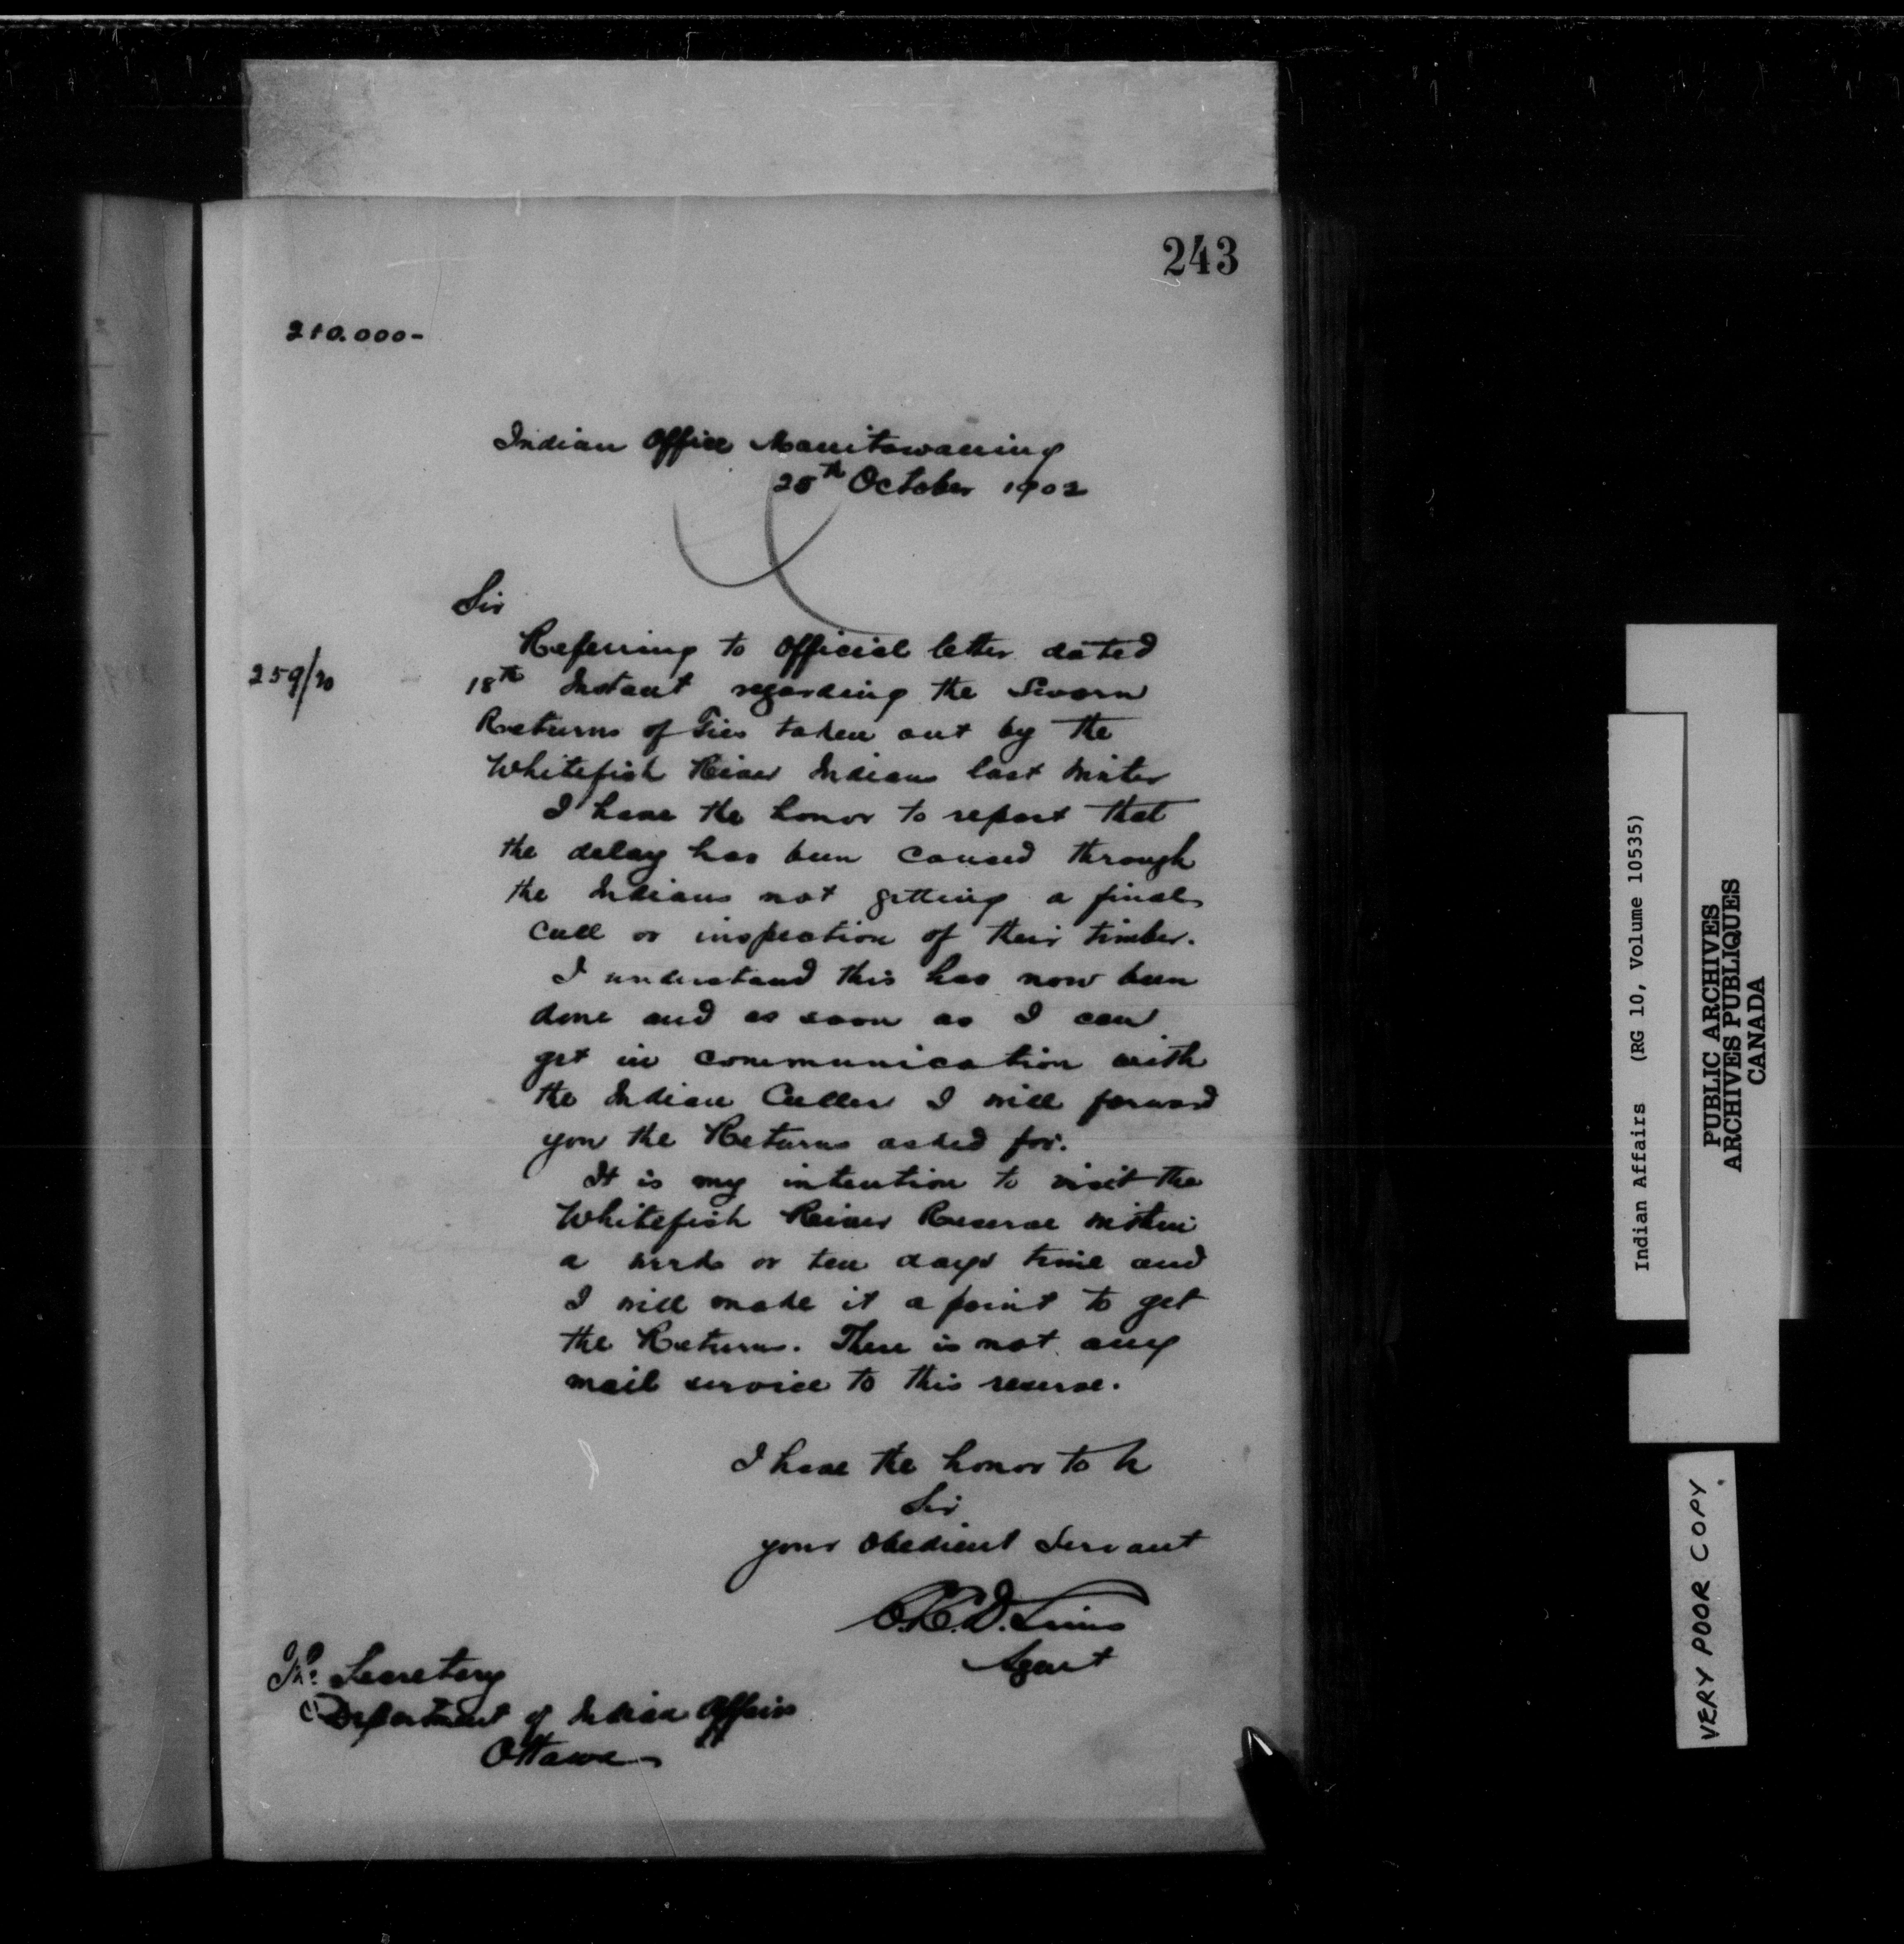 243
210.000-
Indian Office Manitowaning
20th October 1902
Sir
Referring to Official letter dated
259/20
18th Instant regarding the Sworn
Returns of Ties taken out by the
Whitefish River Indians last Winter
I have the honor to report that
the delay has been caused through
the Indians not getting a final
Cull or inspection of their timber.
I understand this has now been
done and as soon as I can
get in communication with
the Indian Culler I will forward
you the Returns asked for.
It is my intention to visit the
Whitefish River Reserve within
a week or ten days time and
I will make it a point to get
the Returns. There is not any
mail service to this reserve.
I have the honor to be
Sir
your Obedient Servant
C.L.D. Sims
Agent
The Secretary
Department of Indian Affairs
Ottawa
Indian Affairs (RG 10, Volume 10535)
PUBLIC ARCHIVES
ARCHIVES PUBLIQUES
CANADA
VERY POOR COPY